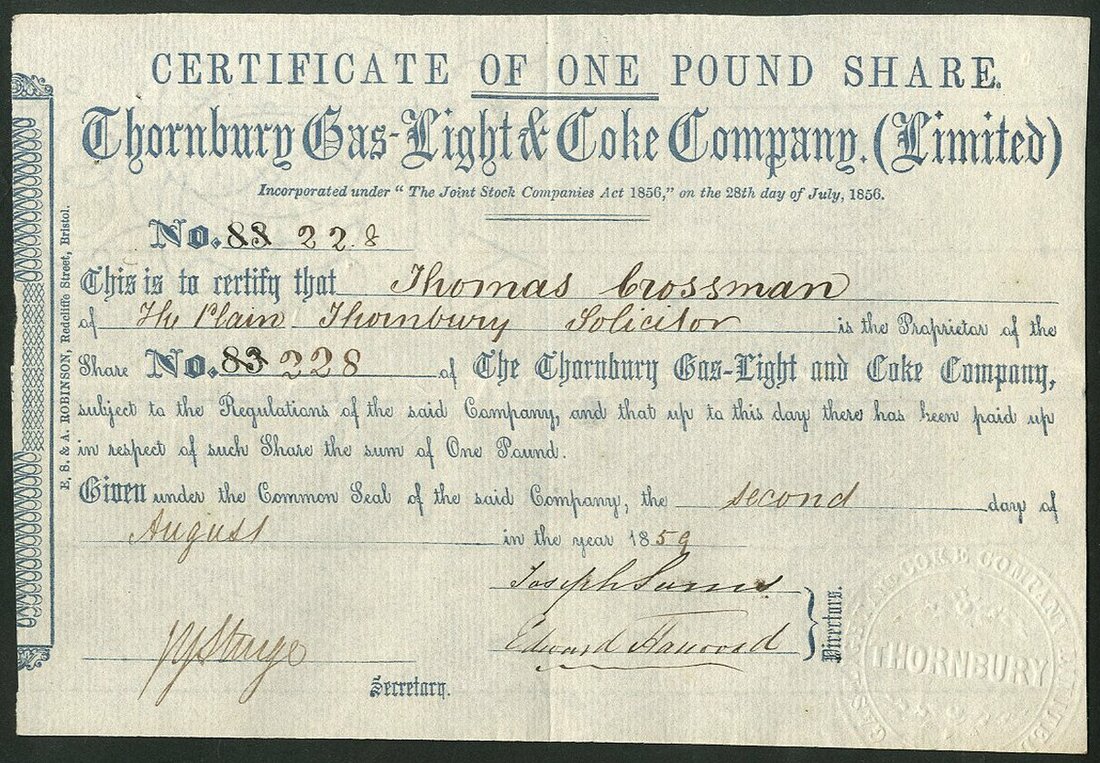 CERTIFICATE OF ONE POUND SHARE.
Thornbury Gas-Light & Coke Company. (Limited)
Incorporated under “The Joint Stock Companies Act 1856,” on the 28th day of July, 1856.
No. 83 228
This is to certify that Thomas Crossman
of The Plain Thornbury Solicitor is the Proprietor of the
Share No. 83 228 of The Thornbury Gas-Light and Coke Company,
subject to the Regulations of the said Company, and that up to this day there has been paid up
in respect of such Share the sum of One Pound.
Given under the Common Seal of the said Company, the second day of
August in the year 1859
Joseph
Edward
Directors.
Secretary.
E, S. & A. ROBINSON, Redcliffe Street, Bristol.
THORNBURY
GAS COKE COMPANY LIMITED